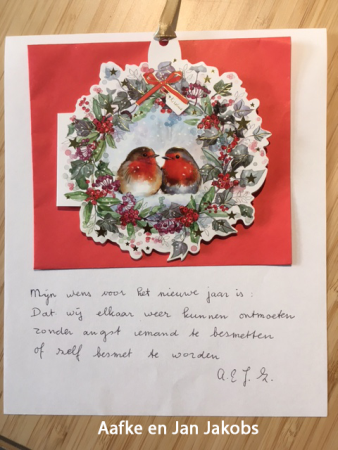 Mijn wens voor het nieuwe jaar is:
Dat wij elkaar weer kunnen ontmoeten
zonder angst iemand te besmetten
of zelf besmet te worden
Aafke en Jan Jakobs